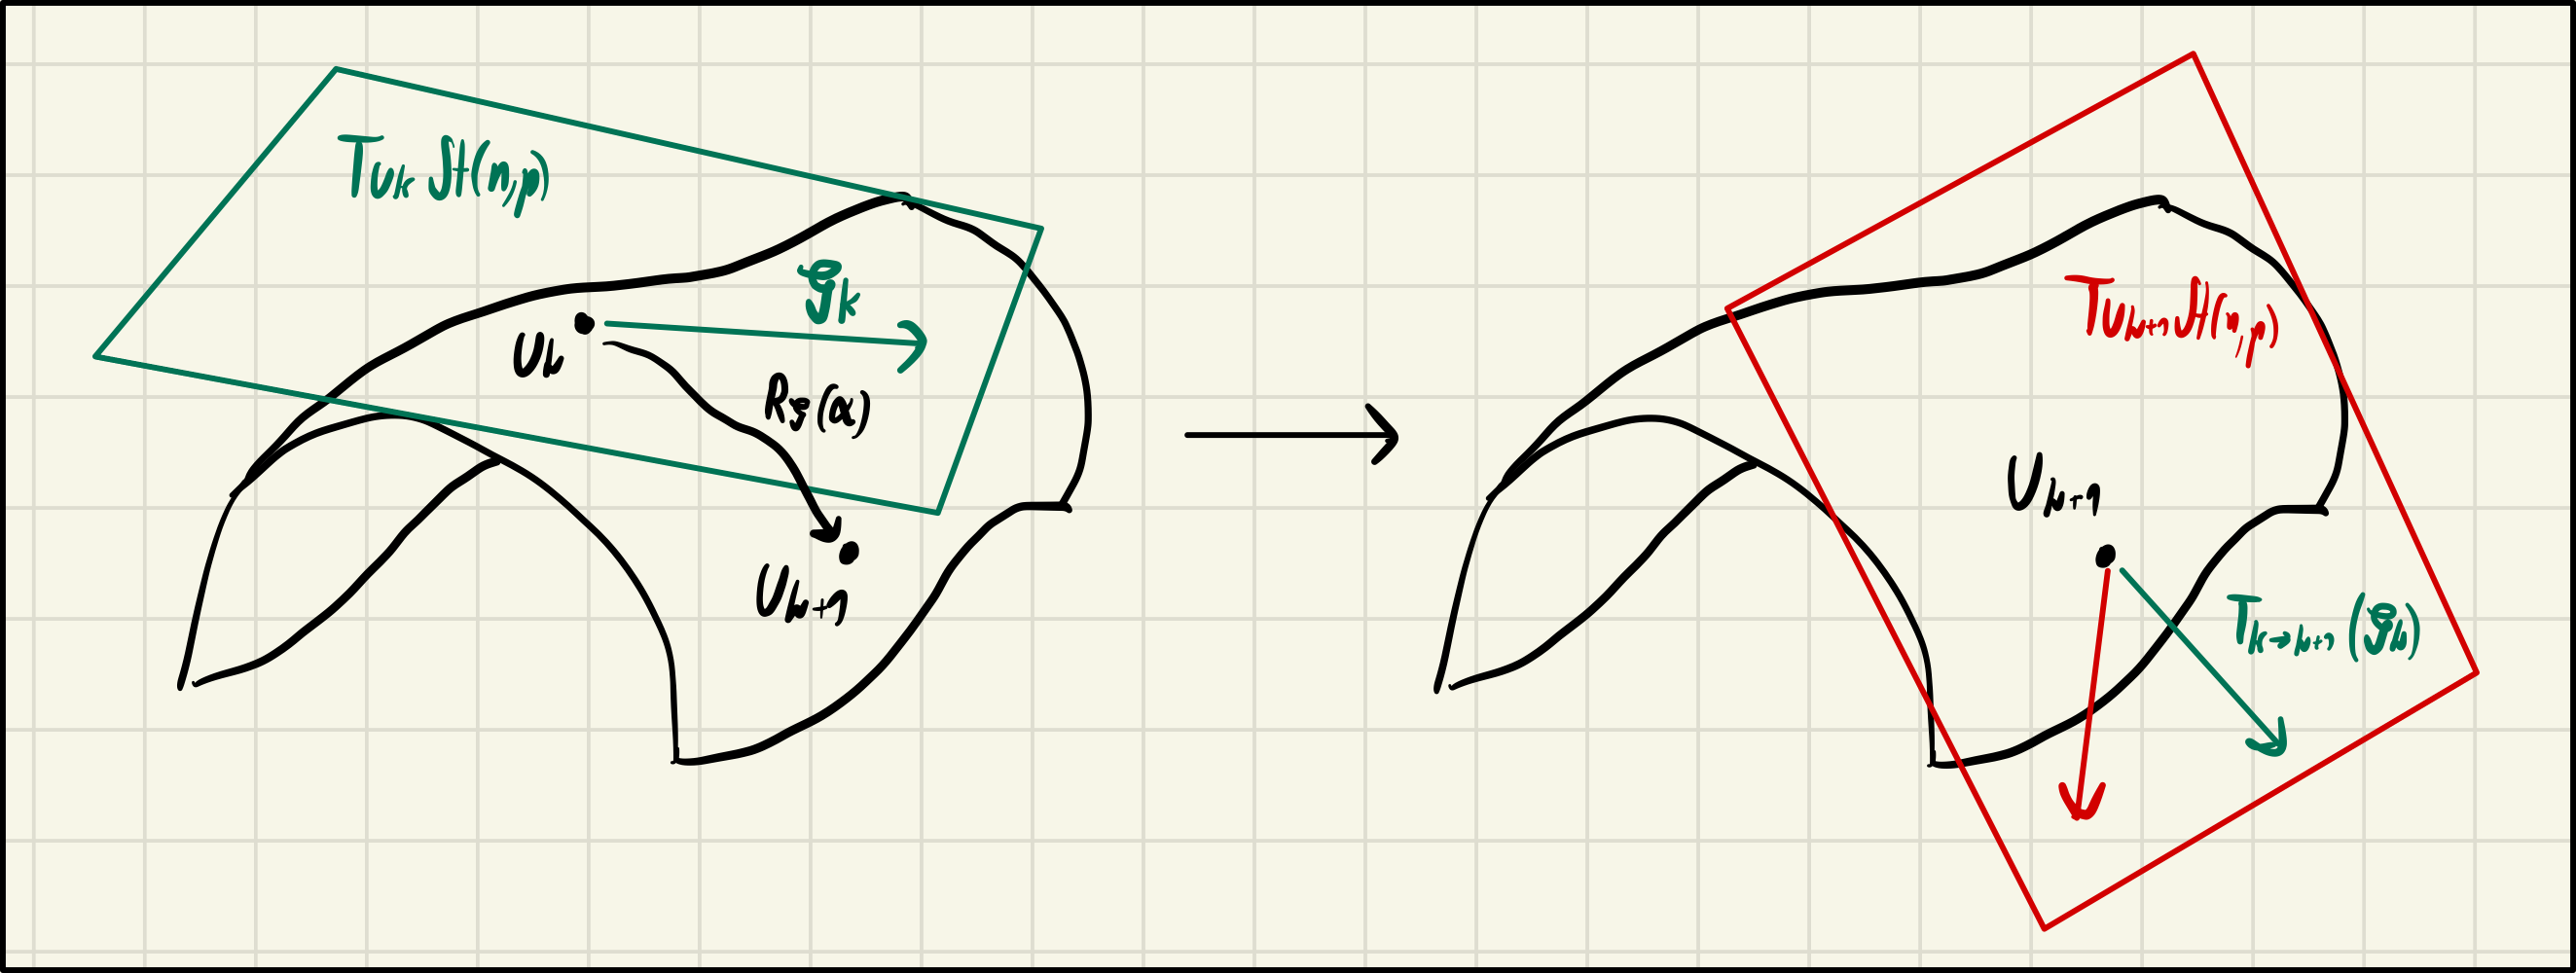 T_{U_k} St(n,p)
ξ_k
U_k
R_ξ(α)
U_{k+1}
T_{U_{k+1}} St(n,p)
U_{k+1}
T_{k→k+1}(ξ_k)